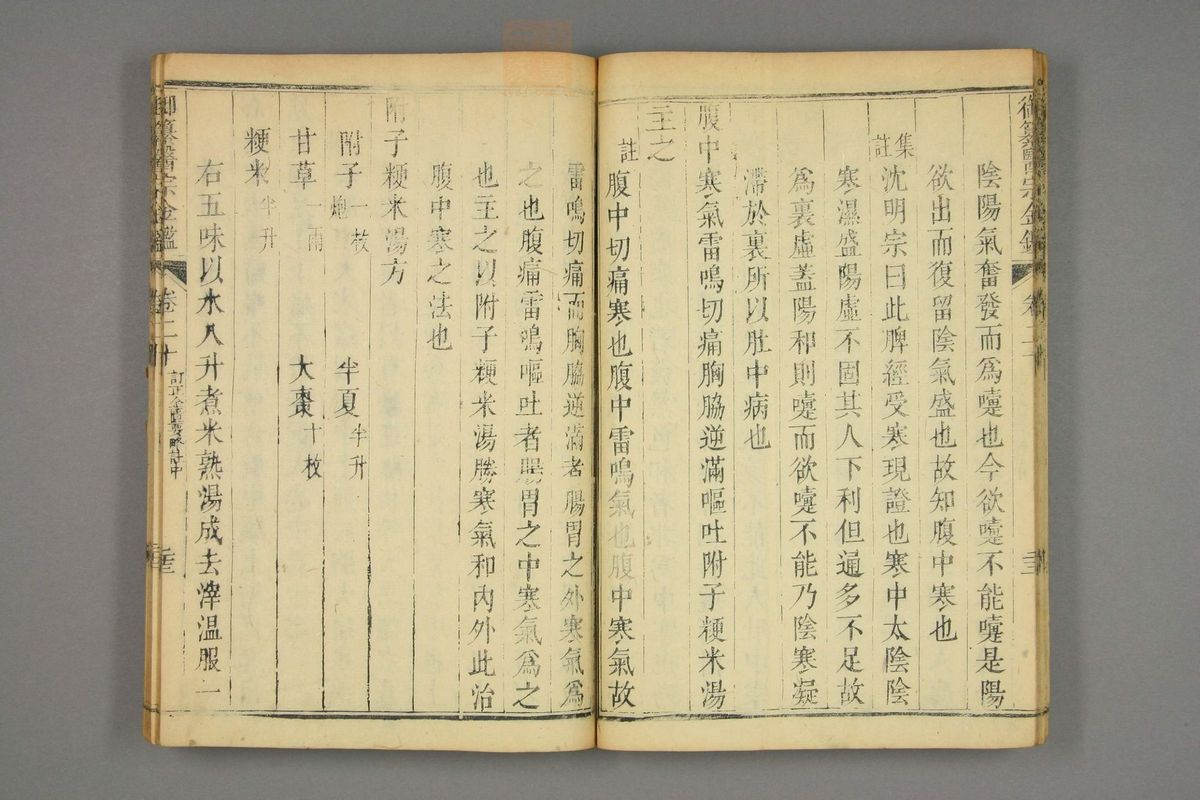 陰陽氣奮發而爲嚏也今欲嚏不能嚏是陽
欲出而復留陰氣盛也故知腹中寒也
集註
沈明宗曰此脾經受寒現證也寒中太陰陰
寒濕盛陽虛不固其人下利但通多不足故
爲裏虛蓋陽和則嚏而欲嚏不能乃陰寒凝
滯於裏所以肚中病也
腹中寒氣雷鳴切痛胸脇逆滿嘔吐附子粳米湯
主之
註
腹中切痛寒也腹中雷鳴氣也腹中寒氣故
雷鳴切痛而胸脇逆滿者腸胃之外寒氣爲
之也腹痛雷鳴嘔吐者腸胃之中寒氣爲之
也主之以附子粳米湯勝寒氣和內外此治
腹中寒之法也
附子粳米湯方
附子一枚炮 半夏半升
甘草一兩 大棗十枚
粳米半升
右五味以水八升煮米熟湯成去滓溫服一
御纂醫宗金鑑 卷二十 訂正金匱要略註中